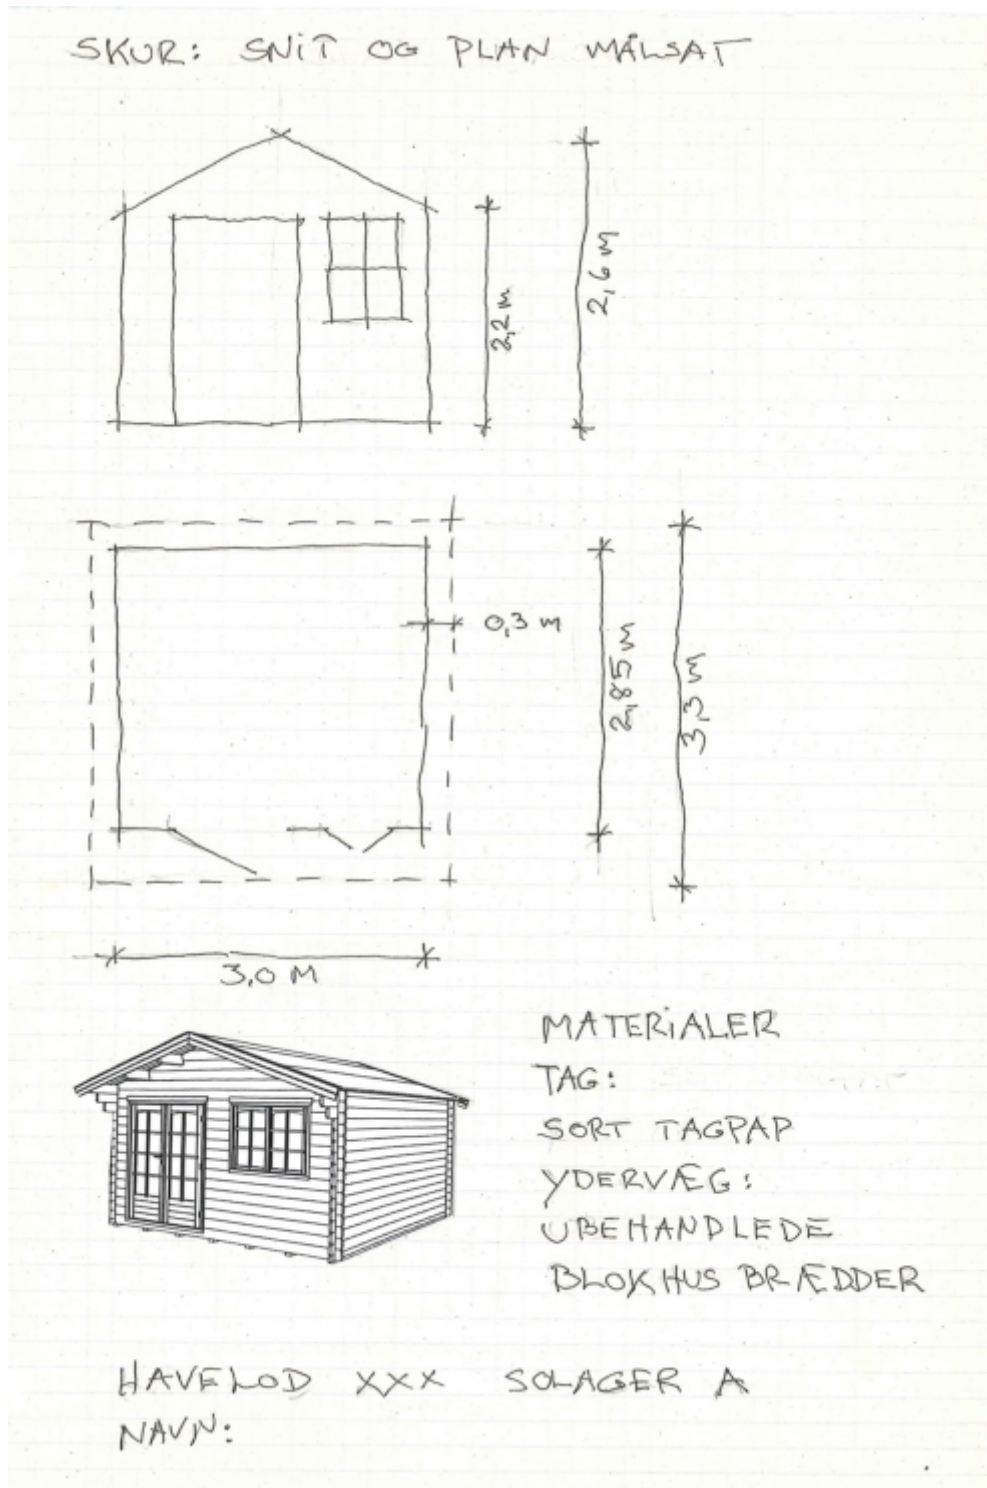 SKUR: SNIT OG PLAN MÅLSAT
2,2 m
2,6 m
0,3 m
2,85 m
3,3 m
3,0 M
MATERIALER
TAG:
SORT TAGPAP
YDERVÆG:
UBEHANDLEDE
BLOKHUS BRÆDDER
HAVELOD XXX SOLAGER A
NAVN: